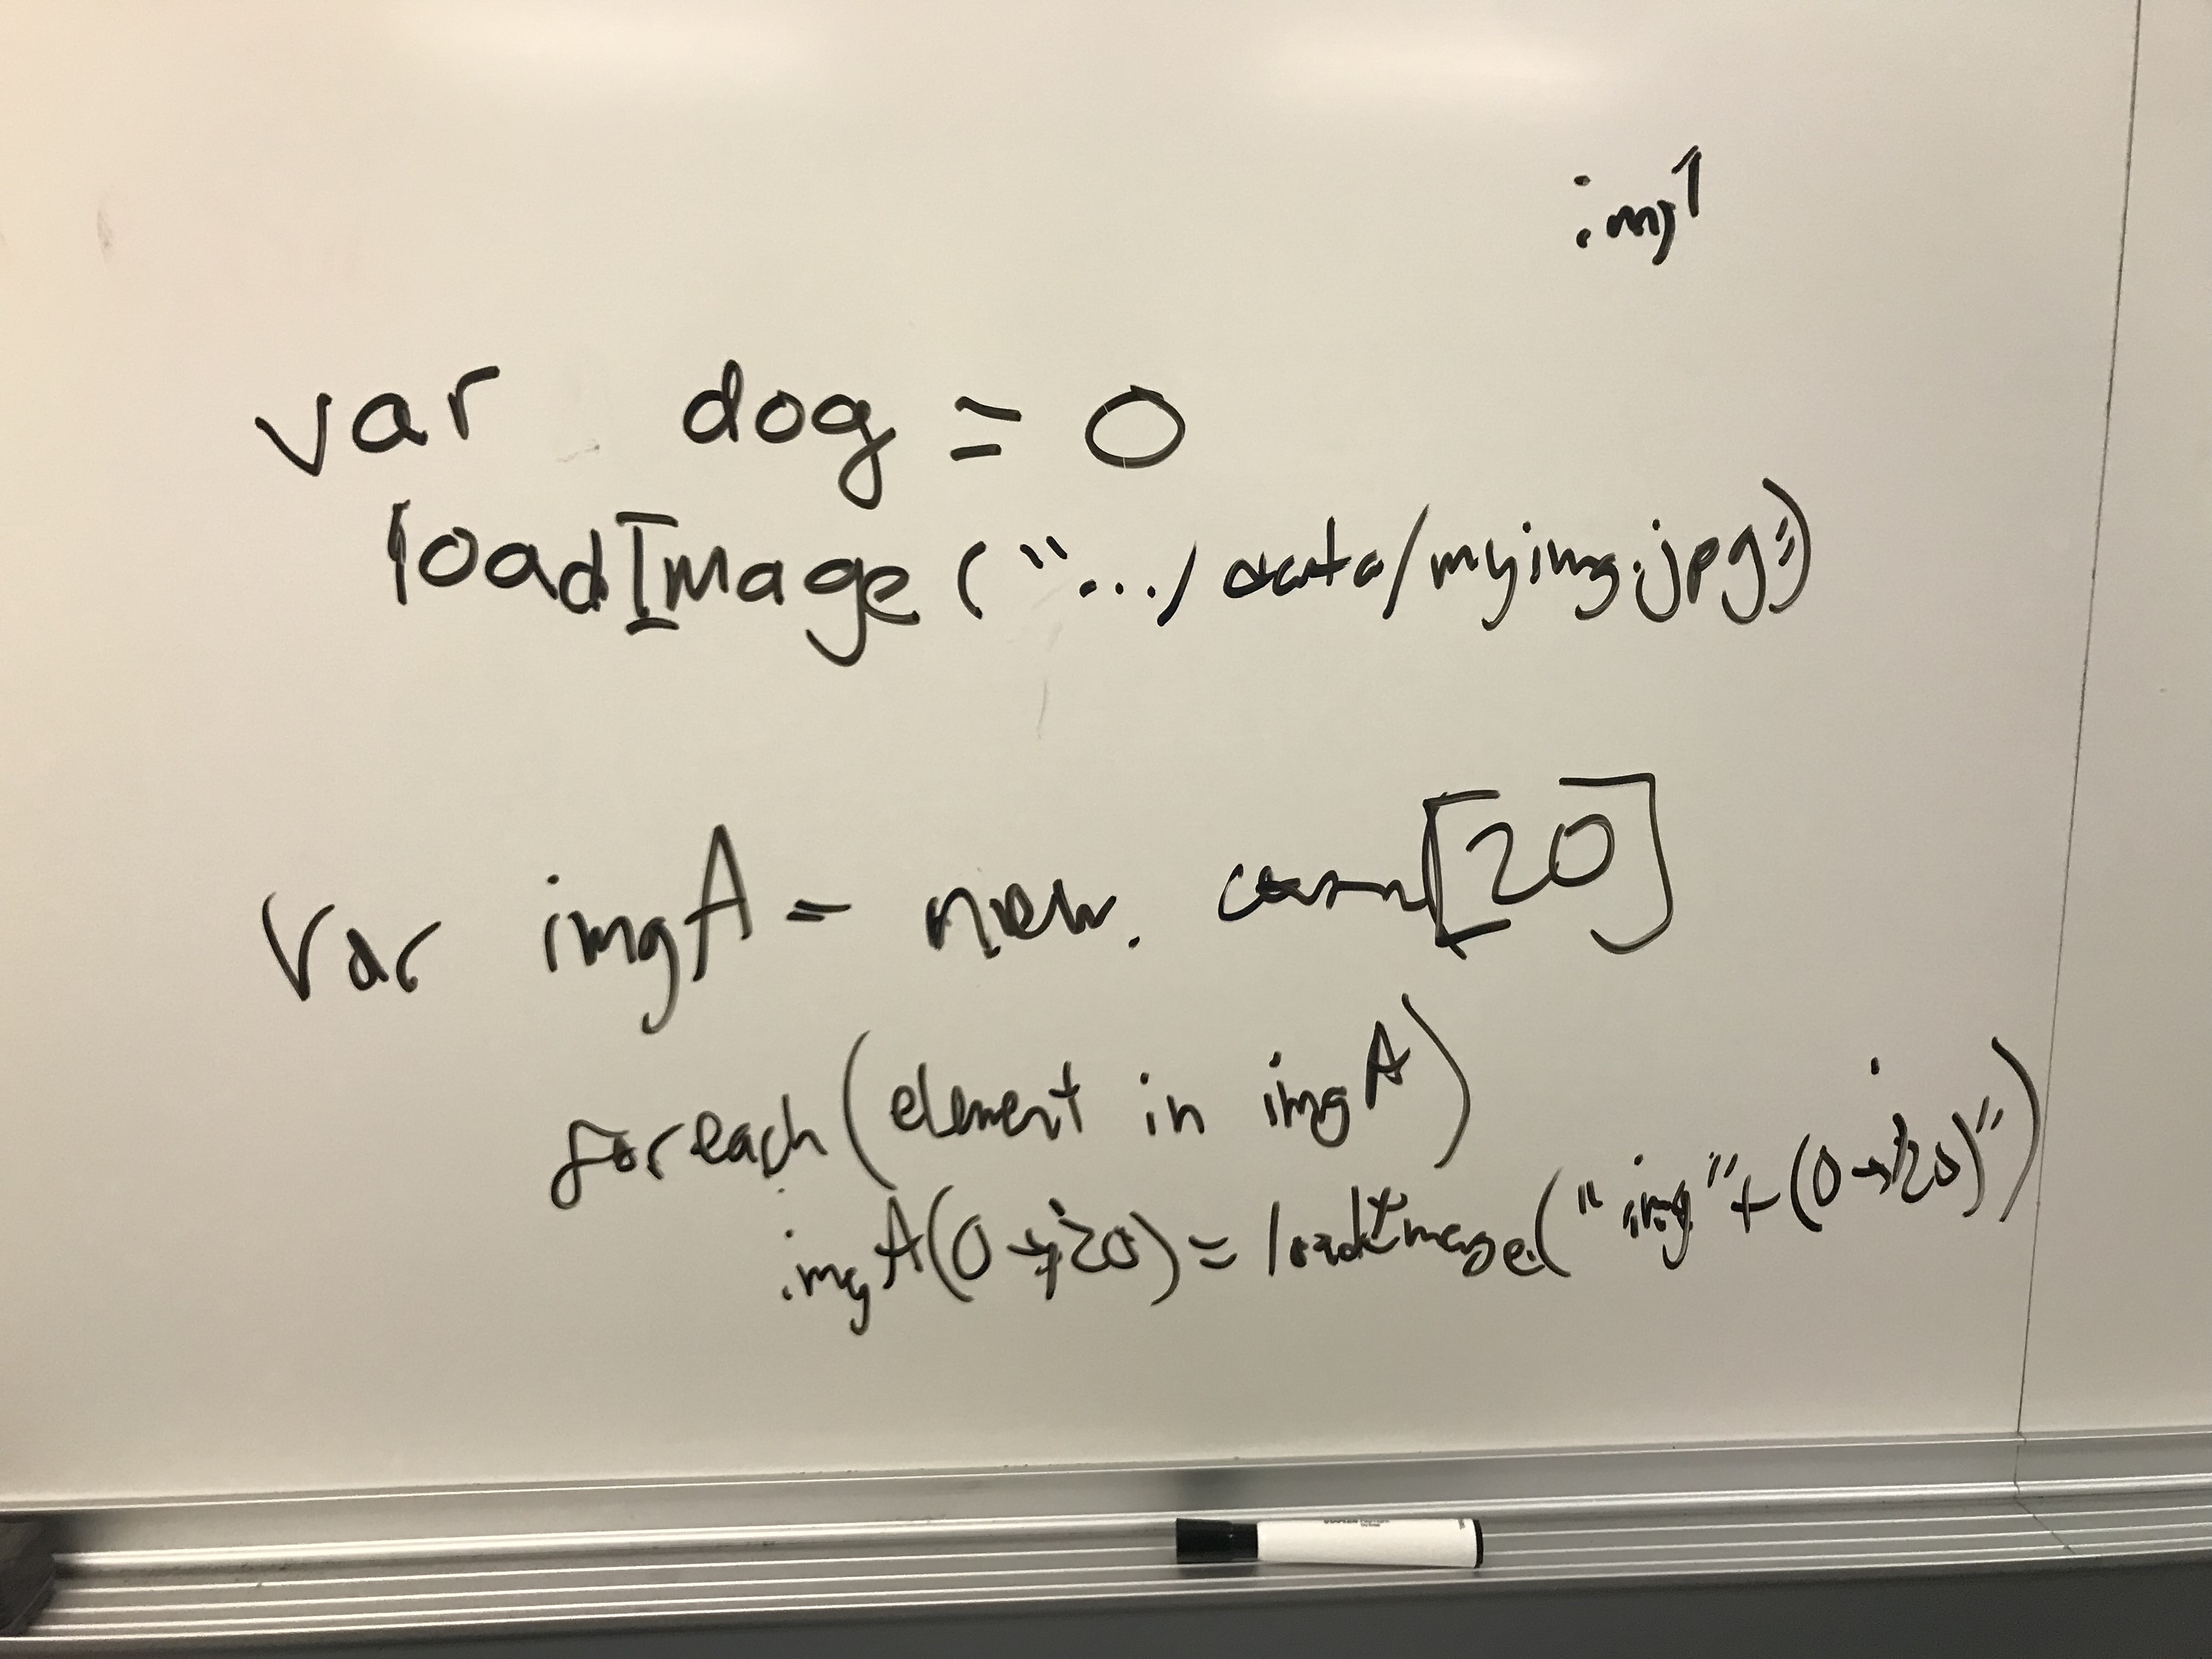 img1
var dog = 0
loadImage (".../data/myimg.jpg")
Var imgA = new. [20]
foreach (element in imgA)
imgA(0→20) = loadImage("img"+(0→20)")